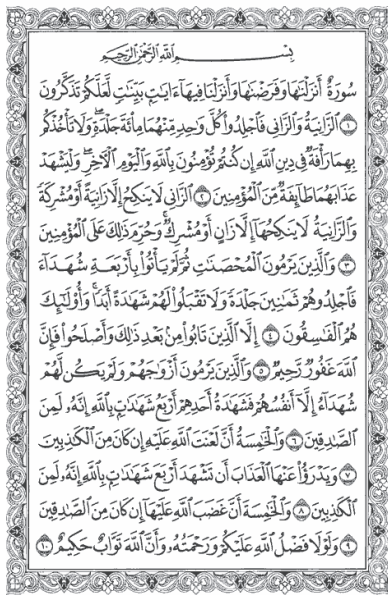 بِسْمِ اللَّهِ الرَّحْمَٰنِ الرَّحِيمِ
سُورَةٌ أَنزَلْنَاهَا وَفَرَضْنَاهَا وَأَنزَلْنَا فِيهَا ءَايَاتٍ بَيِّنَاتٍ لَّعَلَّكُمْ تَذَكَّرُونَ
١ الزَّانِيَةُ وَالزَّانِي فَاجْلِدُوا كُلَّ وَاحِدٍ مِّنْهُمَا مِائَةَ جَلْدَةٍ وَلَا تَأْخُذْكُم
بِهِمَا رَأْفَةٌ فِي دِينِ اللَّهِ إِن كُنتُمْ تُؤْمِنُونَ بِاللَّهِ وَالْيَوْمِ الْآخِرِ وَلْيَشْهَدْ
عَذَابَهُمَا طَائِفَةٌ مِّنَ الْمُؤْمِنِينَ ٢ الزَّانِي لَا يَنكِحُ إِلَّا زَانِيَةً أَوْ مُشْرِكَةً
وَالزَّانِيَةُ لَا يَنكِحُهَا إِلَّا زَانٍ أَوْ مُشْرِكٌ وَحُرِّمَ ذَٰلِكَ عَلَى الْمُؤْمِنِينَ
٣ وَالَّذِينَ يَرْمُونَ الْمُحْصَنَاتِ ثُمَّ لَمْ يَأْتُوا بِأَرْبَعَةِ شُهَدَاءَ
فَاجْلِدُوهُمْ ثَمَانِينَ جَلْدَةً وَلَا تَقْبَلُوا لَهُمْ شَهَادَةً أَبَدًا وَأُولَٰئِكَ
هُمُ الْفَاسِقُونَ ٤ إِلَّا الَّذِينَ تَابُوا مِن بَعْدِ ذَٰلِكَ وَأَصْلَحُوا فَإِنَّ
اللَّهَ غَفُورٌ رَّحِيمٌ ٥ وَالَّذِينَ يَرْمُونَ أَزْوَاجَهُمْ وَلَمْ يَكُن لَّهُمْ
شُهَدَاءُ إِلَّا أَنفُسُهُمْ فَشَهَادَةُ أَحَدِهِمْ أَرْبَعُ شَهَادَاتٍ بِاللَّهِ إِنَّهُ لَمِنَ
الصَّادِقِينَ ٦ وَالْخَامِسَةُ أَنَّ لَعْنَتَ اللَّهِ عَلَيْهِ إِن كَانَ مِنَ الْكَاذِبِينَ
٧ وَيَدْرَؤُا عَنْهَا الْعَذَابَ أَن تَشْهَدَ أَرْبَعَ شَهَادَاتٍ بِاللَّهِ إِنَّهُ لَمِنَ
الْكَاذِبِينَ ٨ وَالْخَامِسَةَ أَنَّ غَضَبَ اللَّهِ عَلَيْهَا إِن كَانَ مِنَ الصَّادِقِينَ
٩ وَلَوْلَا فَضْلُ اللَّهِ عَلَيْكُمْ وَرَحْمَتُهُ وَأَنَّ اللَّهَ تَوَّابٌ حَكِيمٌ ١٠